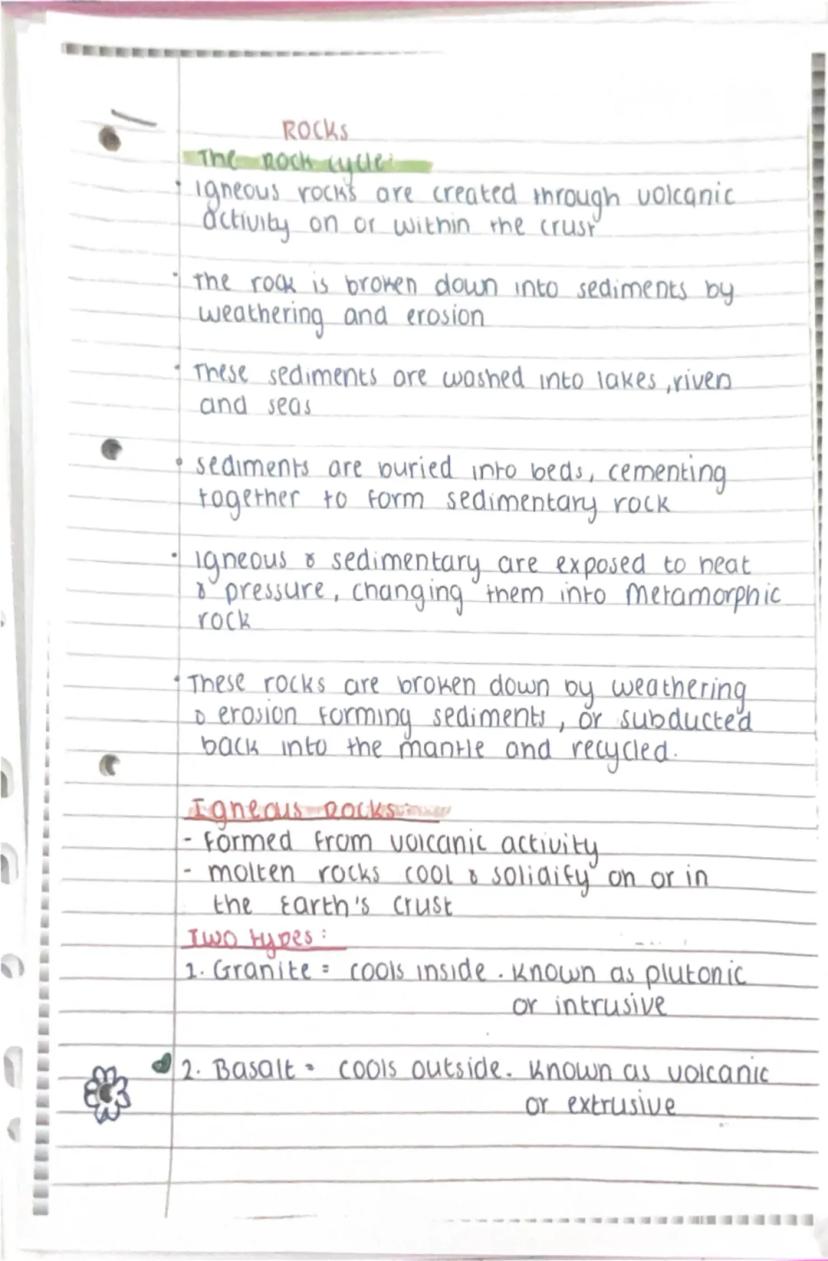 ROCKS
The Rock cycle:
• Igneous rocks are created through volcanic
activity on or within the crust
• The rock is broken down into sediments by
weathering and erosion
• These sediments are washed into lakes, rivers
and seas
• sediments are buried into beds, cementing
together to form sedimentary rock
• Igneous & sedimentary are exposed to heat
& pressure, changing them into Metamorphic
rock
• These rocks are broken down by weathering
& erosion forming sediments, or subducted
back into the mantle and recycled.
Igneous Rocks:
- formed from volcanic activity
- molten rocks cool & solidify on or in
the Earth's crust
Two types:
1. Granite = cools inside. Known as plutonic
or intrusive
2. Basalt = cools outside. Known as volcanic
or extrusive